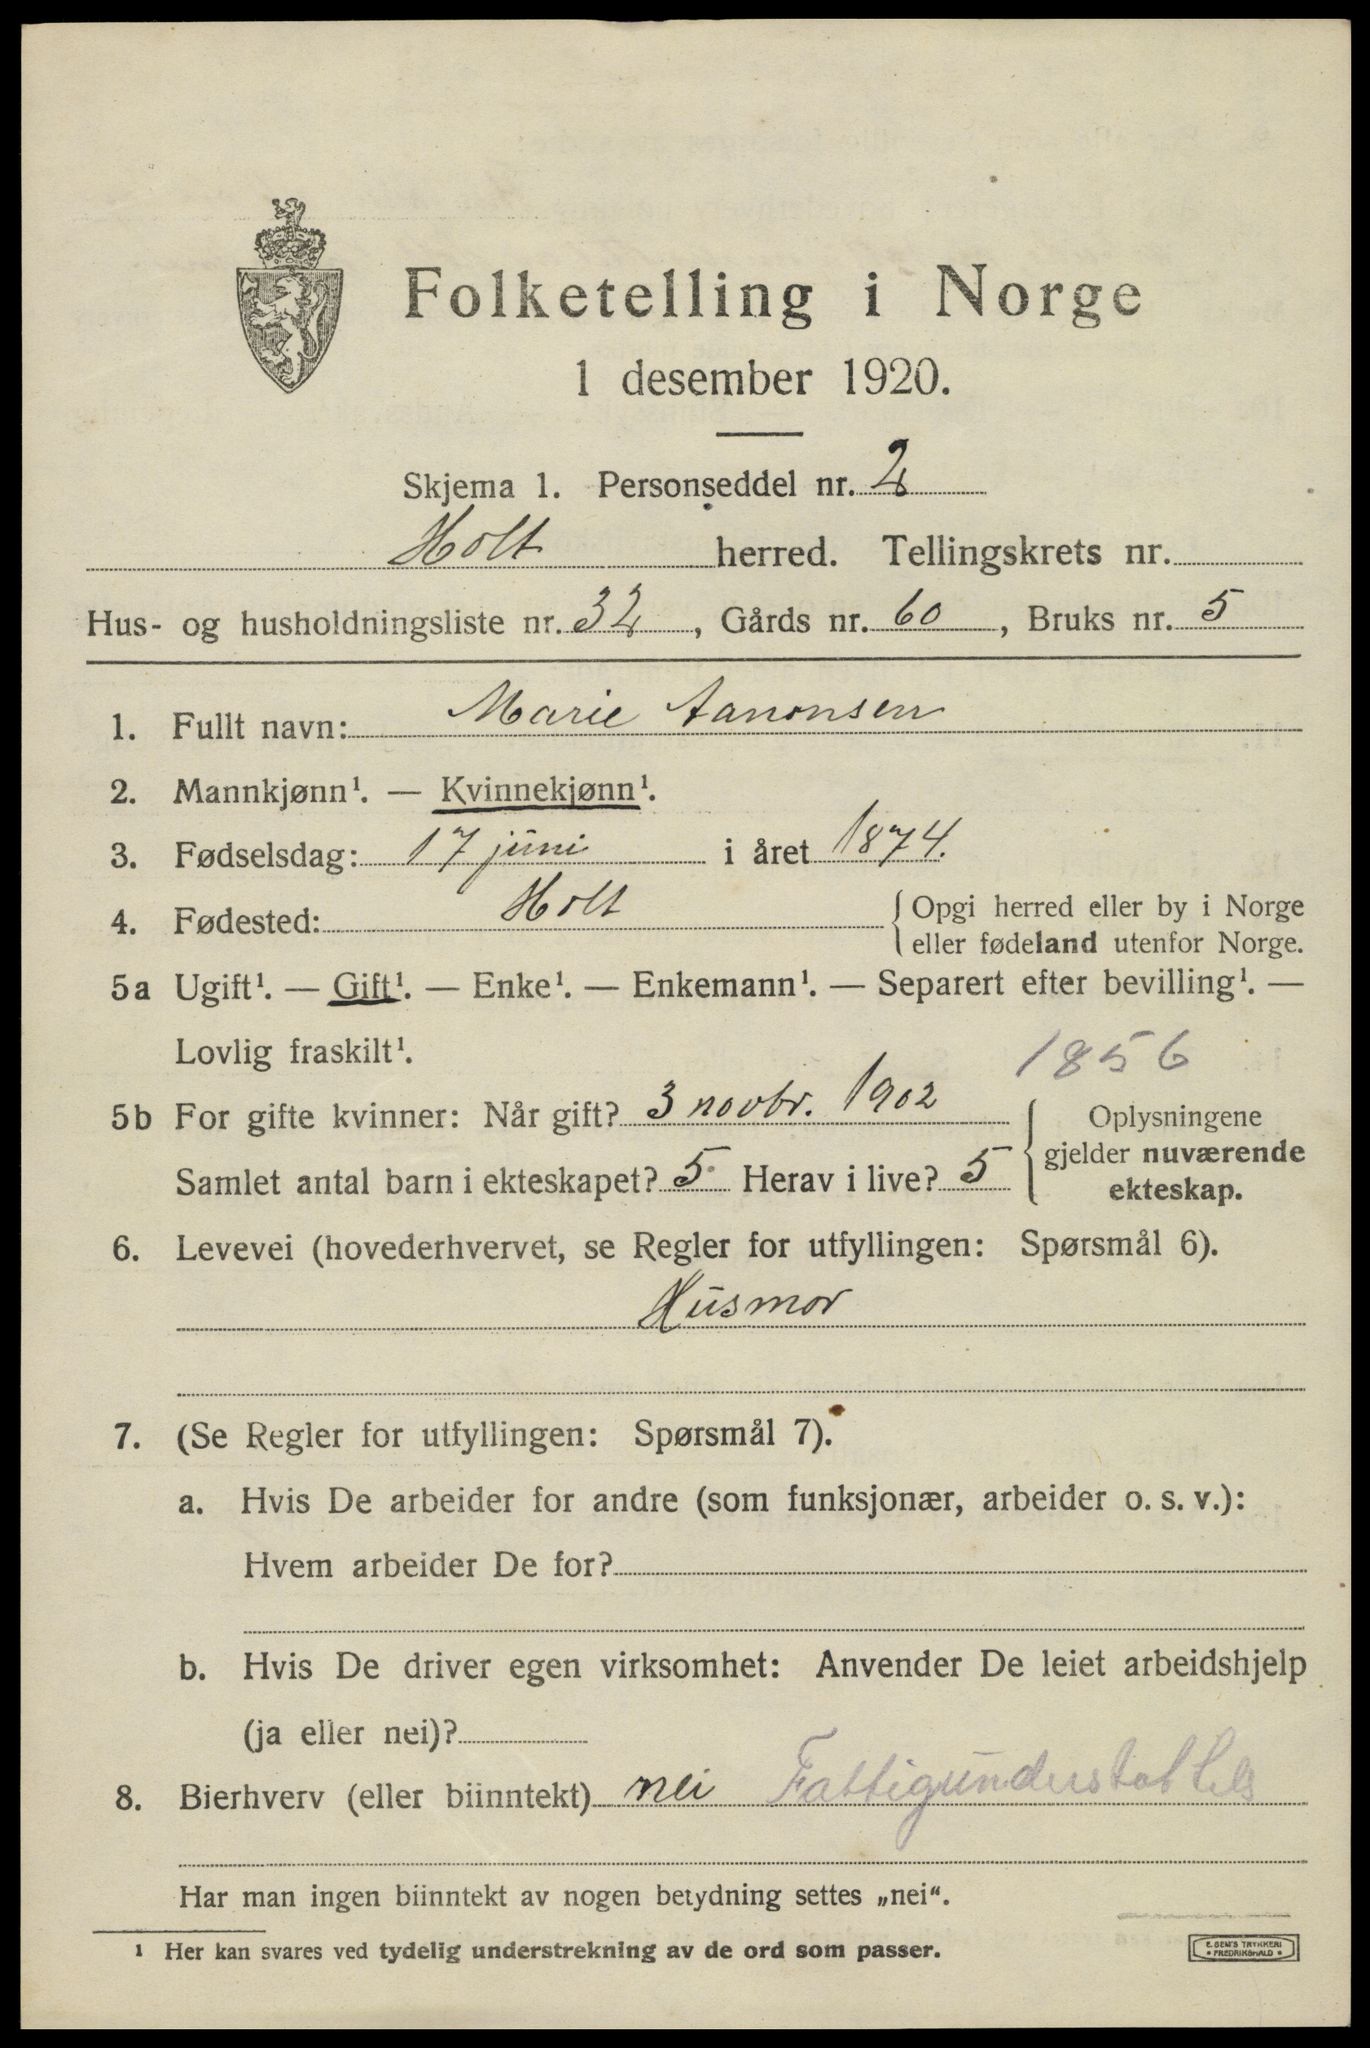 Folketelling i Norge
1 desember 1920.
Skjema 1. Personseddel nr. 2
Holt herred. Tellingskrets nr.
Hus- og husholdningsliste nr. 32, Gårds nr. 60, Bruks nr. 5
1. Fullt navn: Marie Aanonsen
2. Mannkjønn¹. — Kvinnekjønn¹.
3. Fødselsdag: 17 juni i året 1874.
4. Fødested: Holt { Opgi herred eller by i Norge
eller fødeland utenfor Norge.
5a Ugift¹. — Gift¹. — Enke¹. — Enkemann¹. — Separert efter bevilling¹. —
Lovlig fraskilt¹.
1856
5b For gifte kvinner: Når gift? 3 novbr. 1902
Samlet antal barn i ekteskapet? 5 Herav i live? 5
{ Oplysningene
gjelder nuværende
ekteskap.
6. Levevei (hovederhvervet, se Regler for utfyllingen: Spørsmål 6).
Husmor
7. (Se Regler for utfyllingen: Spørsmål 7).
a. Hvis De arbeider for andre (som funksjonær, arbeider o. s. v.):
Hvem arbeider De for?
b. Hvis De driver egen virksomhet: Anvender De leiet arbeidshjelp
(ja eller nei)?
8. Bierhverv (eller biinntekt) nei
Har man ingen biinntekt av nogen betydning settes „nei“.
¹ Her kan svares ved tydelig understrekning av de ord som passer.
E. SEM'S TRYKKERI
* FREDRIKSHALD *